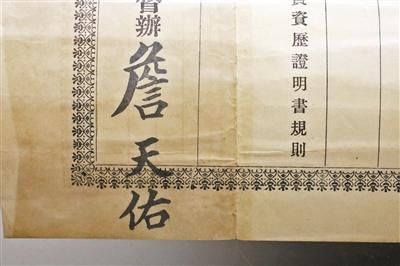 資歷證明書規則
督辦
詹天佑